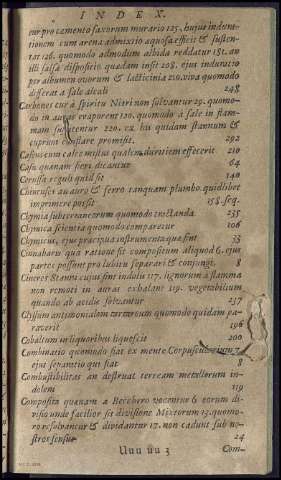 INDEX.
cur pro cæmento saxorum murario 125. hujus indura-
tionem cum arena admixtio aquosa efficit & susten-
tat 126. quomodo admodum albida reddatur 181. an
illi salsa dispositio quædam insit 208. ejus induratio
per albumen ovorum & lacticinia 210. viva quomodo
differat à sale alcali 248
Carbones cur à spiritu Nitri non solvantur 29. quomo-
do in auras evaporent 120. quomodo à sale in flam-
mam 220. ex his quidam stannum &
cuprum conflare promisit. 292
Caseus cum calce mistus qualem duritiem effecerit 210
Casu quænam fieri dicantur 64
Cerussa reguli quid sit 140
Chirurici au auro & ferro tanquam plumbo quidlibet
imprimere possit 158. seq.
Chymia subterraneorum quomodo tractanda 235
Chymica scientia quomodo comparetur 106
Chymicus, ejus præcipua instrumenta quæ sint 33
Cinnabaris qua ratione sit compositum aliquod 6. ejus
partes possint pro lubitu separari & conjungi. 8
Cineres & antecujus sint indulii 117. lignorum à flamma
non remoti in auras exhalant 119. vegetabilium
quando ab acidis solvantur 237
Clysum antimonialem tartareum quomodo quidam pa-
raverit 196
Cobaltum in liquoribus liquescit 200
Combinatio quomodo fiat ex mente Corpuscul
ejus separatio qui fiat 8
Combustibilitas an destruat terream metallorum in-
dolem 119
Composita quænam à Bechero vocentur 6 eorum di-
visio unde facilior sit divisione Mixtorum 13. quomo-
do resolvantur & dividantur 17. non cadunt sub no-
stros sensus 24
Uuu uu 3 Com-